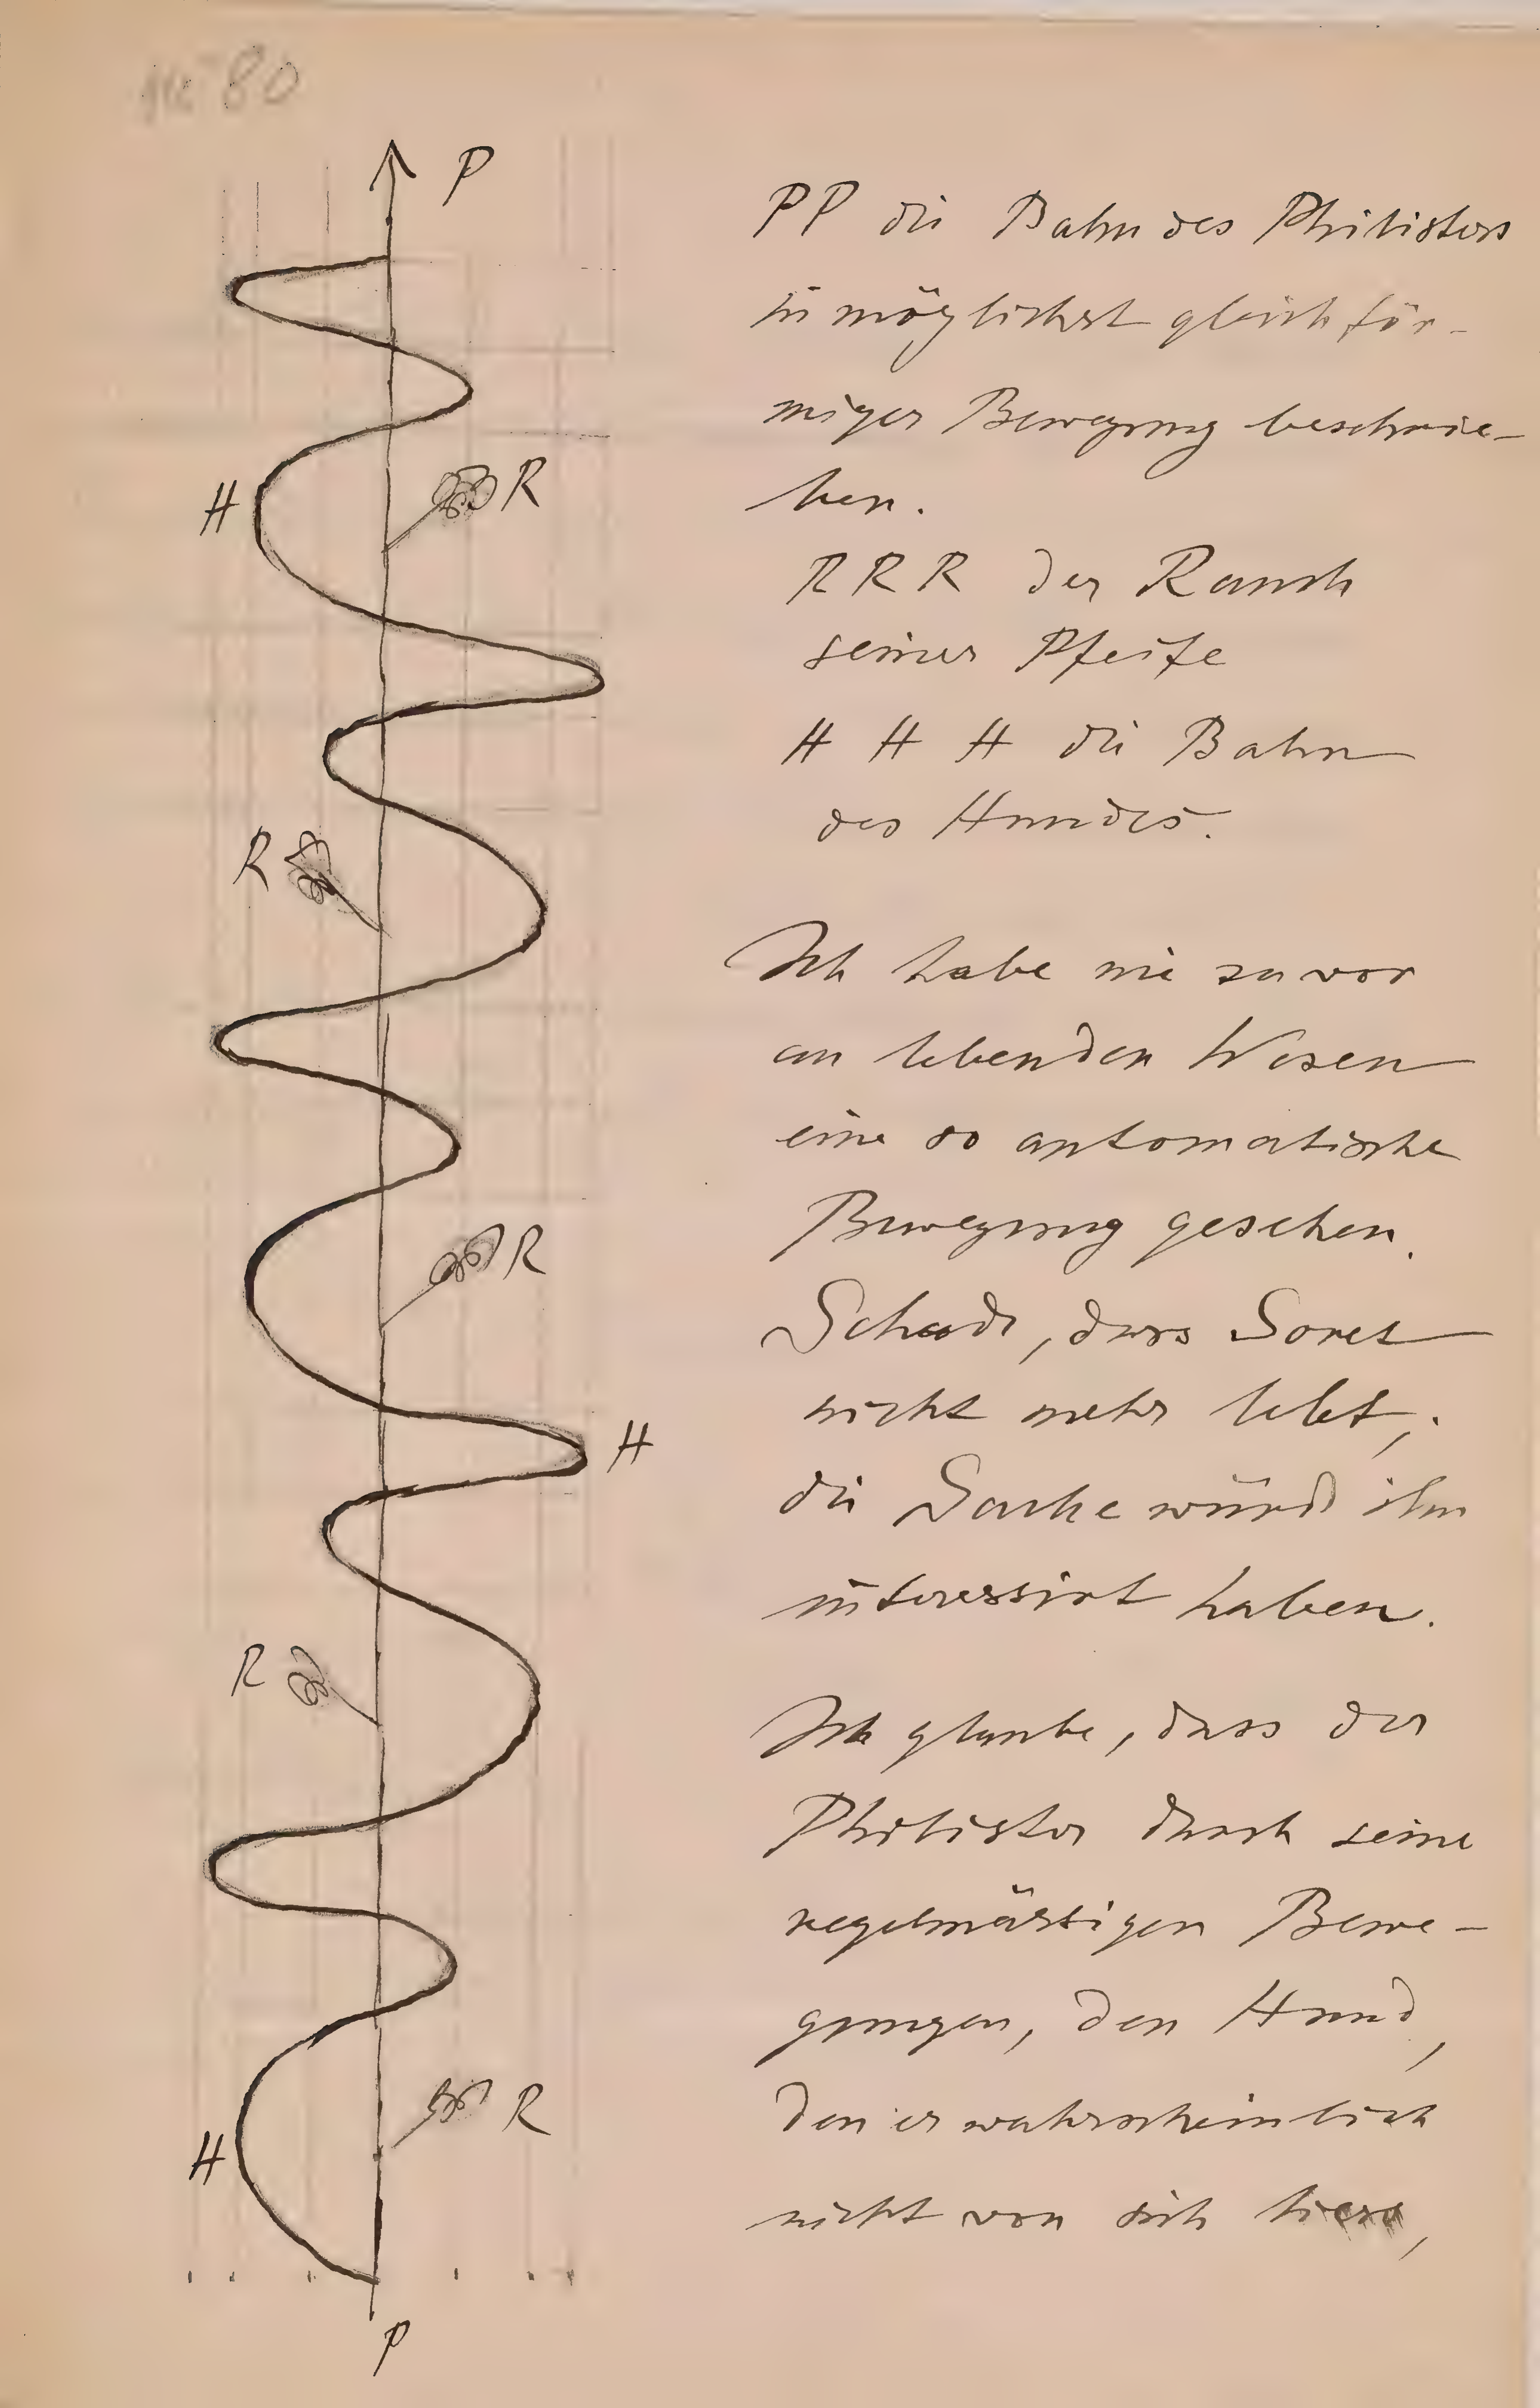 No 80
P
PP die Bahn des Philisters
in möglichst gleichför-
miger Bewegung beschrie-
ben.
H
R
RRR der Rauch
seiner Pfeife
H H H die Bahn
des Hundes.
R
Ich habe nie zuvor
an lebenden Wesen
eine so automatische
Bewegung gesehen.
R
Schade, dass Soret
nicht mehr lebt,
H
die Sache würde ihn
interessirt haben.
R
Ich glaube, dass der
Philister durch seine
regelmässigen Bewe-
gungen, den Hund,
den er wahrscheinlich
R
H
nicht von sich liess,
P